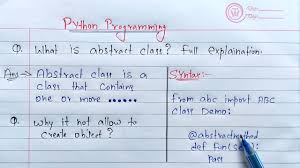 Python Programming
Q. What is abstract class? Full Explaination.
Ans → Abstract class is a
class that contains
one or more ......
Q. Why it not allow to
create object?
Syntax:-
from abc import ABC
class Demo:
@abstractmethod
def fun(self):
pass